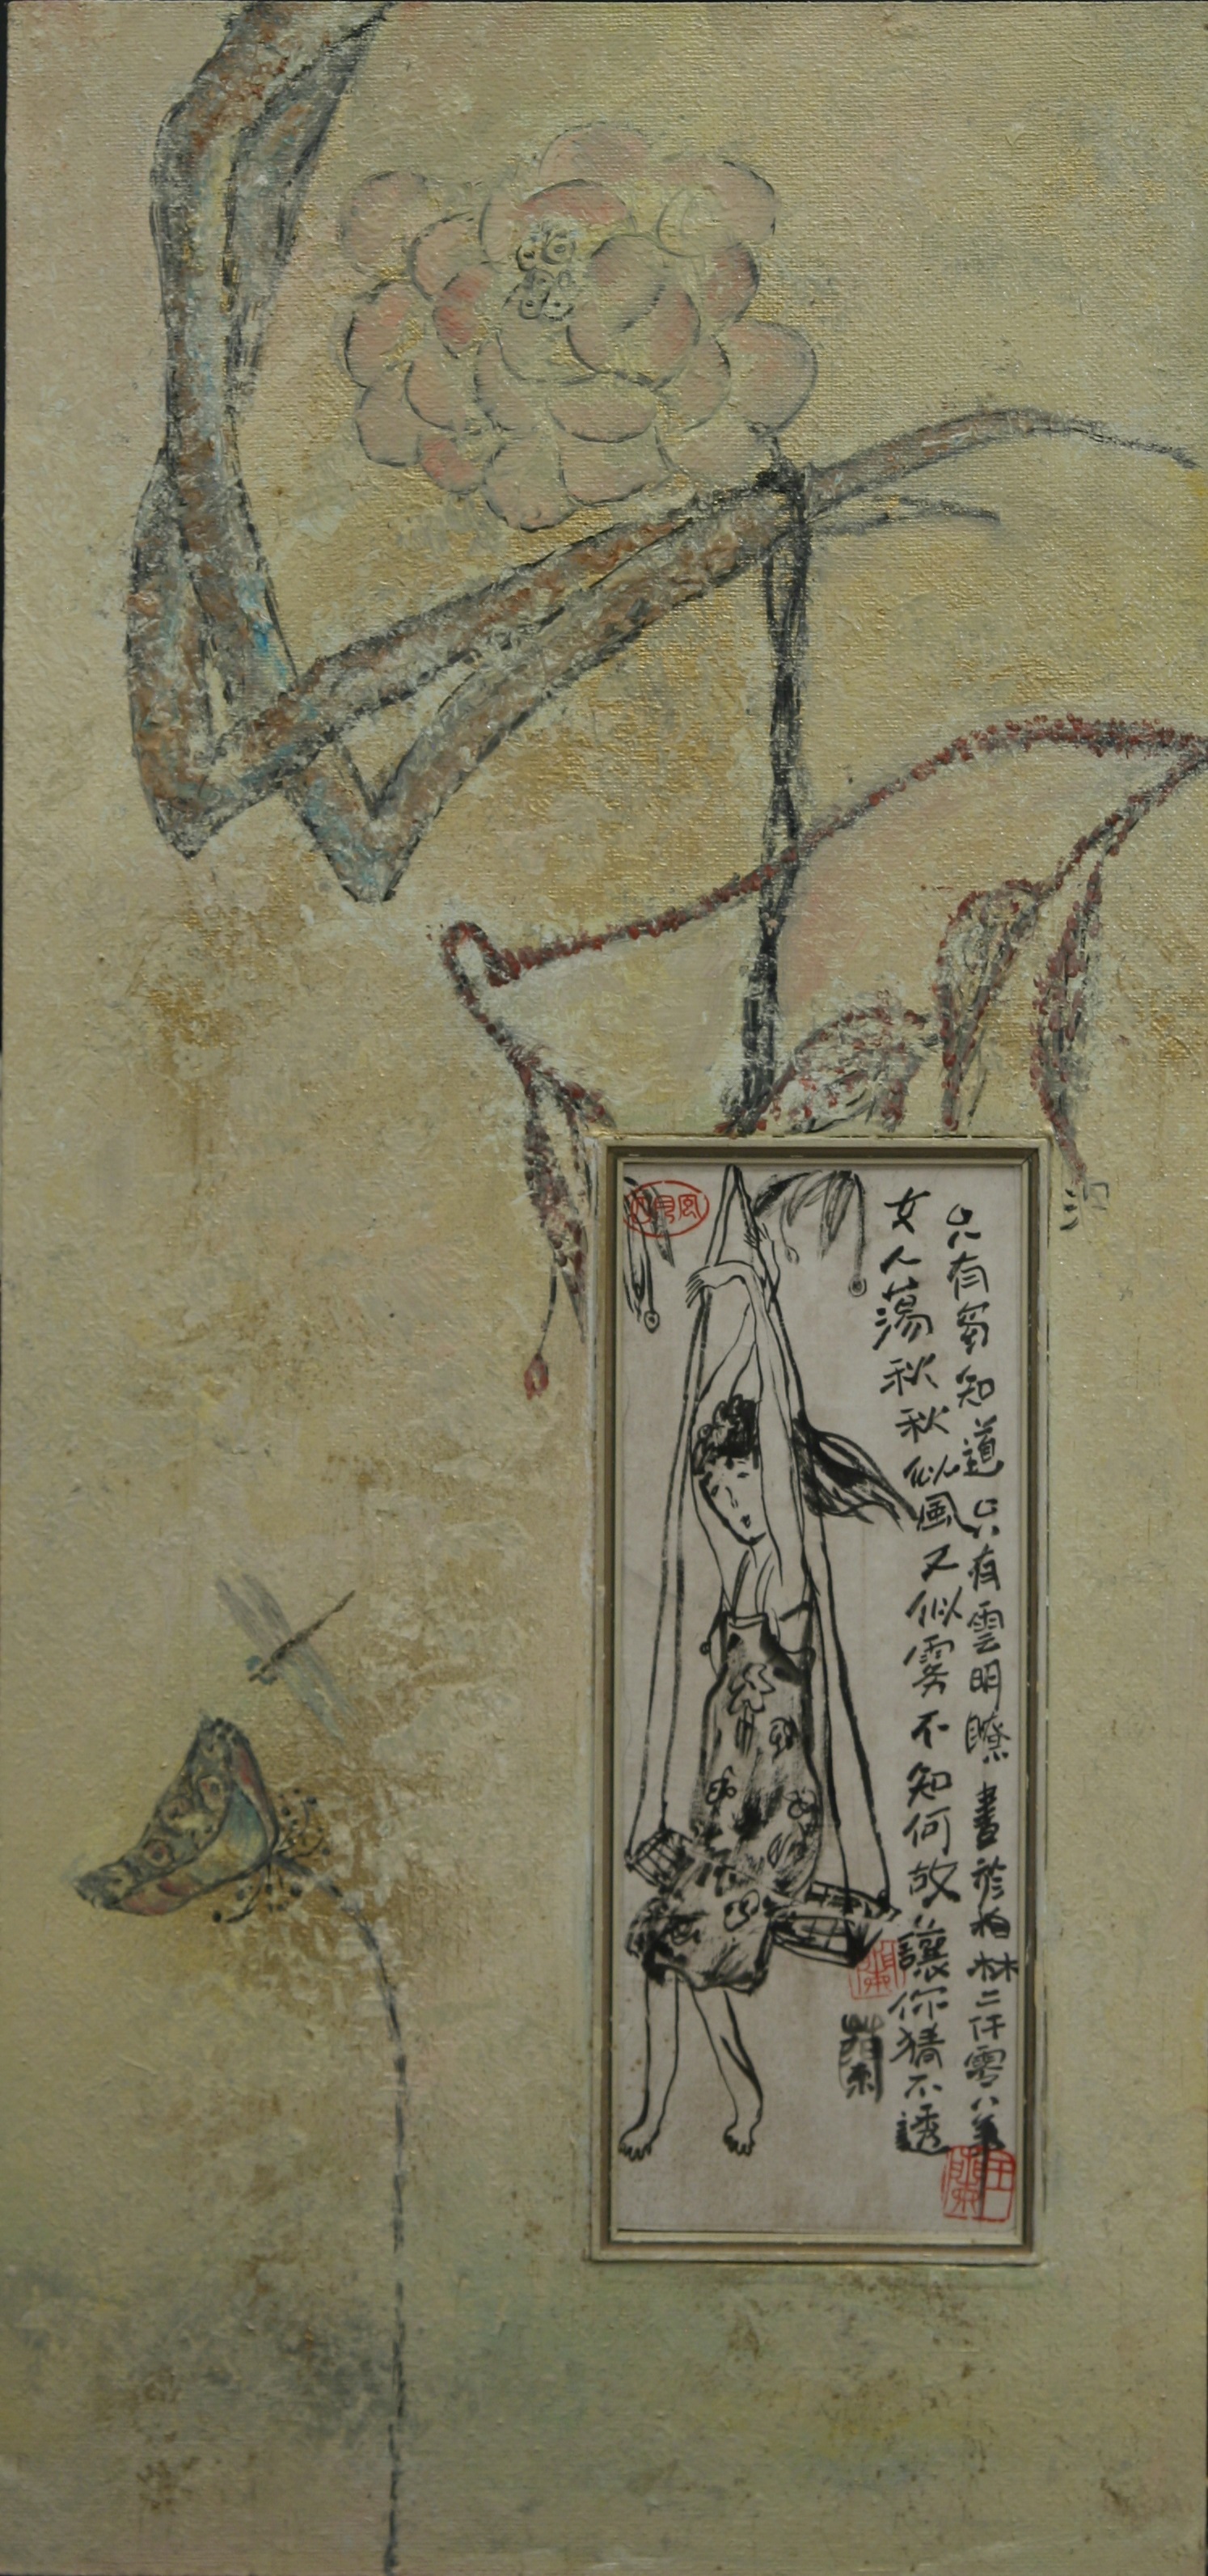 女人蕩秋秋似風又似霧不知何故讓你猜不透
只有知道只有雲明瞭書於柏林二仟零八年
蘭